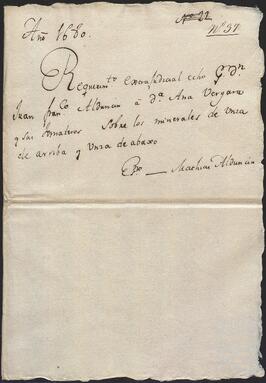 Nº 22
Año 1680. Nº 37.
Requerimto extrajudicial echo Pr Dn
Juan Franco Alduncin à Da Ana Vergara
y sus Consortes sobre los minerales de Unza
de arriba y Unza de abaxo
Mathias Alduncin